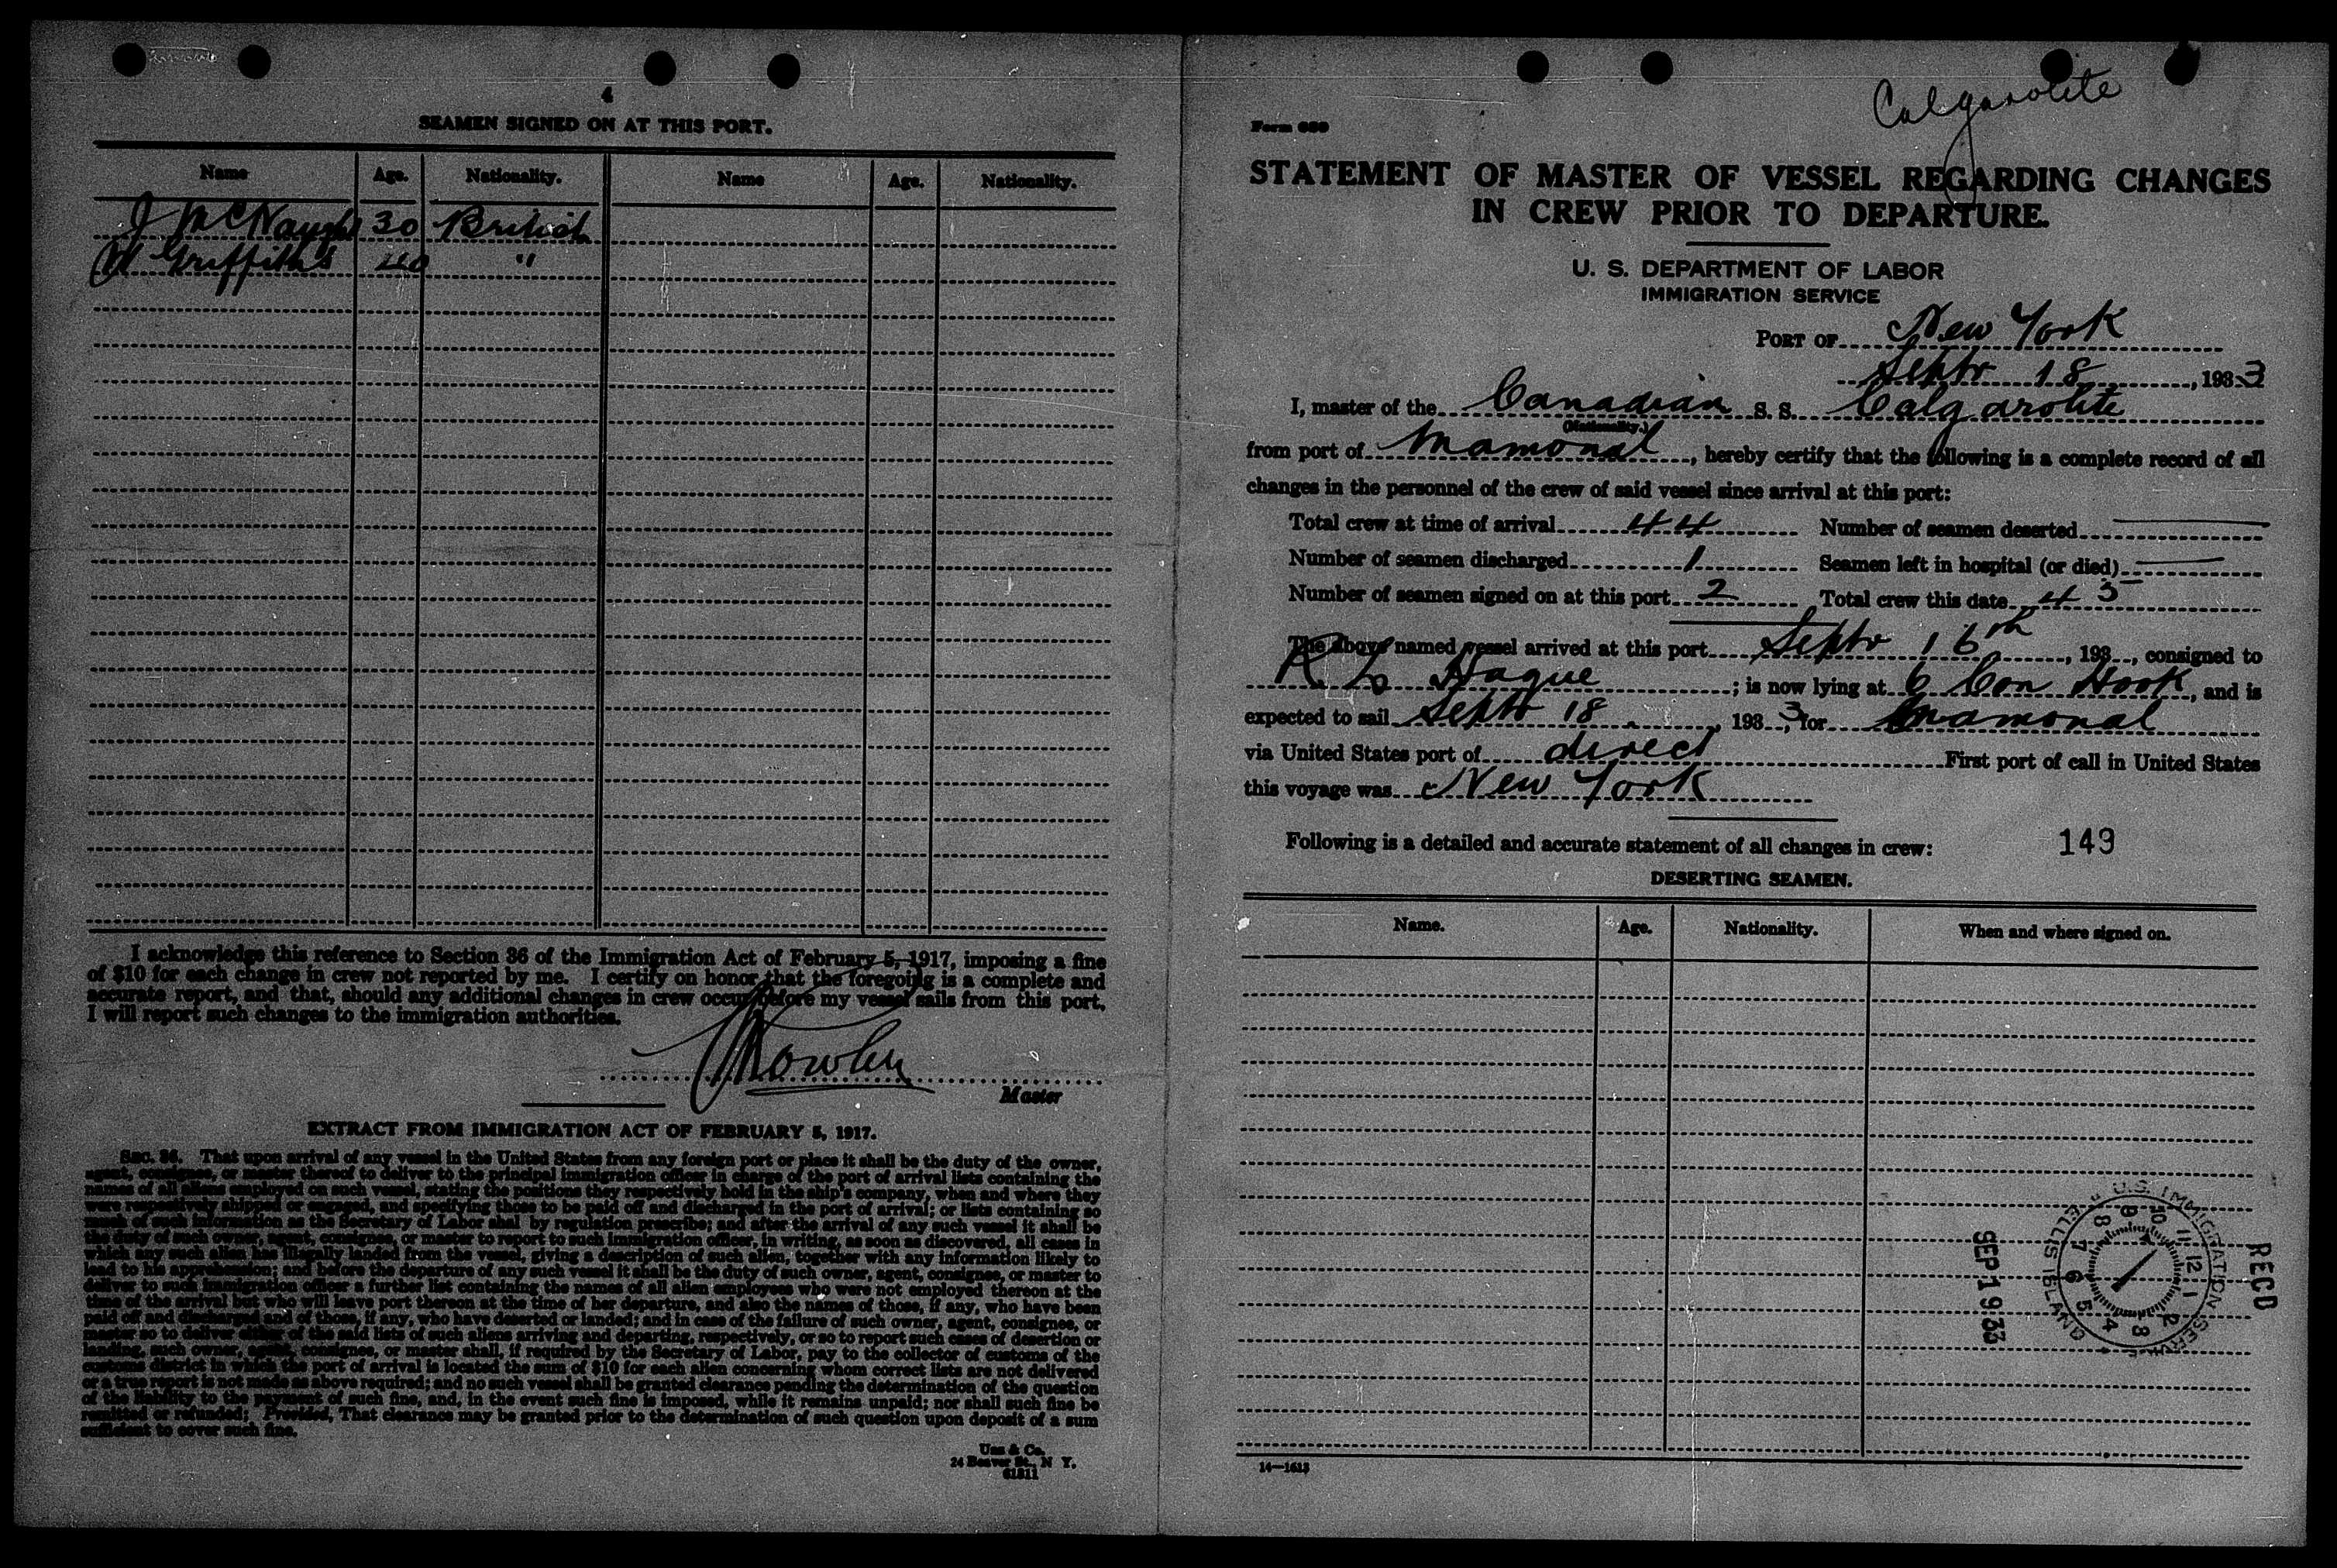 4
SEAMEN SIGNED ON AT THIS PORT.
Name Age. Nationality. Name Age. Nationality.
J McNaught 30 British
W Griffiths 40 "
I acknowledge this reference to Section 36 of the Immigration Act of February 5, 1917, imposing a fine
of $10 for each change in crew not reported by me. I certify on honor that the foregoing is a complete and
accurate report, and that, should any additional changes in crew occur before my vessel sails from this port,
I will report such changes to the immigration authorities.
Master
EXTRACT FROM IMMIGRATION ACT OF FEBRUARY 5, 1917.
SEC. 36. That upon arrival of any vessel in the United States from any foreign port or place it shall be the duty of the owner,
agent, consignee, or master thereof to deliver to the principal immigration officer in charge of the port of arrival lists containing the
names of all aliens employed on such vessel, stating the positions they respectively hold in the ship's company, when and where they
were respectively shipped or engaged, and specifying those to be paid off and discharged in the port of arrival; or lists containing so
much of such information as the Secretary of Labor shal by regulation prescribe; and after the arrival of any such vessel it shall be
the duty of such owner, agent, consignee, or master to report to such immigration officer, in writing, as soon as discovered, all cases in
which any such alien has illegally landed from the vessel, giving a description of such alien, together with any information likely to
lead to his apprehension; and before the departure of any such vessel it shall be the duty of such owner, agent, consignee, or master to
deliver to such immigration officer a further list containing the names of all alien employees who were not employed thereon at the
time of the arrival but who will leave port thereon at the time of her departure, and also the names of those, if any, who have been
paid off and discharged and of those, if any, who have deserted or landed; and in case of the failure of such owner, agent, consignee, or
master so to deliver either of the said lists of such aliens arriving and departing, respectively, or so to report such cases of desertion or
landing, such owner, agent, consignee, or master shall, if required by the Secretary of Labor, pay to the collector of customs of the
customs district in which the port of arrival is located the sum of $10 for each alien concerning whom correct lists are not delivered
or a true report is not made as above required; and no such vessel shall be granted clearance pending the determination of the question
of the liability to the payment of such fine, and, in the event such fine is imposed, while it remains unpaid; nor shall such fine be
remitted or refunded: Provided, That clearance may be granted prior to the determination of such question upon deposit of a sum
sufficient to cover such fine.
Unz & Co.
24 Beaver St., N Y.
61311
Calgarolite
Form 689
STATEMENT OF MASTER OF VESSEL REGARDING CHANGES
IN CREW PRIOR TO DEPARTURE.
U. S. DEPARTMENT OF LABOR
IMMIGRATION SERVICE
PORT OF New York
Septr 18, 1933
I, master of the Canadian S. S. Calgarolite
(Nationality.)
from port of Mamonal, hereby certify that the following is a complete record of all
changes in the personnel of the crew of said vessel since arrival at this port:
Total crew at time of arrival 44 Number of seamen deserted —
Number of seamen discharged 1 Seamen left in hospital (or died) —
Number of seamen signed on at this port 2 Total crew this date 45
The above named vessel arrived at this port Septr 16th, 193 , consigned to
R. L. Hague ; is now lying at C Con Hook, and is
expected to sail Septr 18, 1933, for Mamonal
via United States port of direct First port of call in United States
this voyage was New York
Following is a detailed and accurate statement of all changes in crew: 143
DESERTING SEAMEN.
Name. Age. Nationality. When and where signed on.
U.S. IMMIGRATION SERVICE
ELLIS ISLAND
1 2 3 4 5 6 7 8 9 10 11 12
RECD
SEP 19 33
14—1613